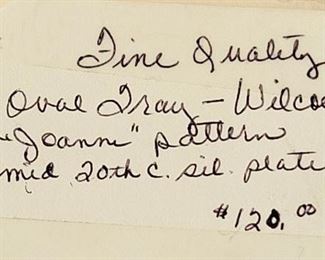 Fine Quality
Oval Tray – Wilco
"Joanne" pattern
mid 20th c. sil. plate
$120.00